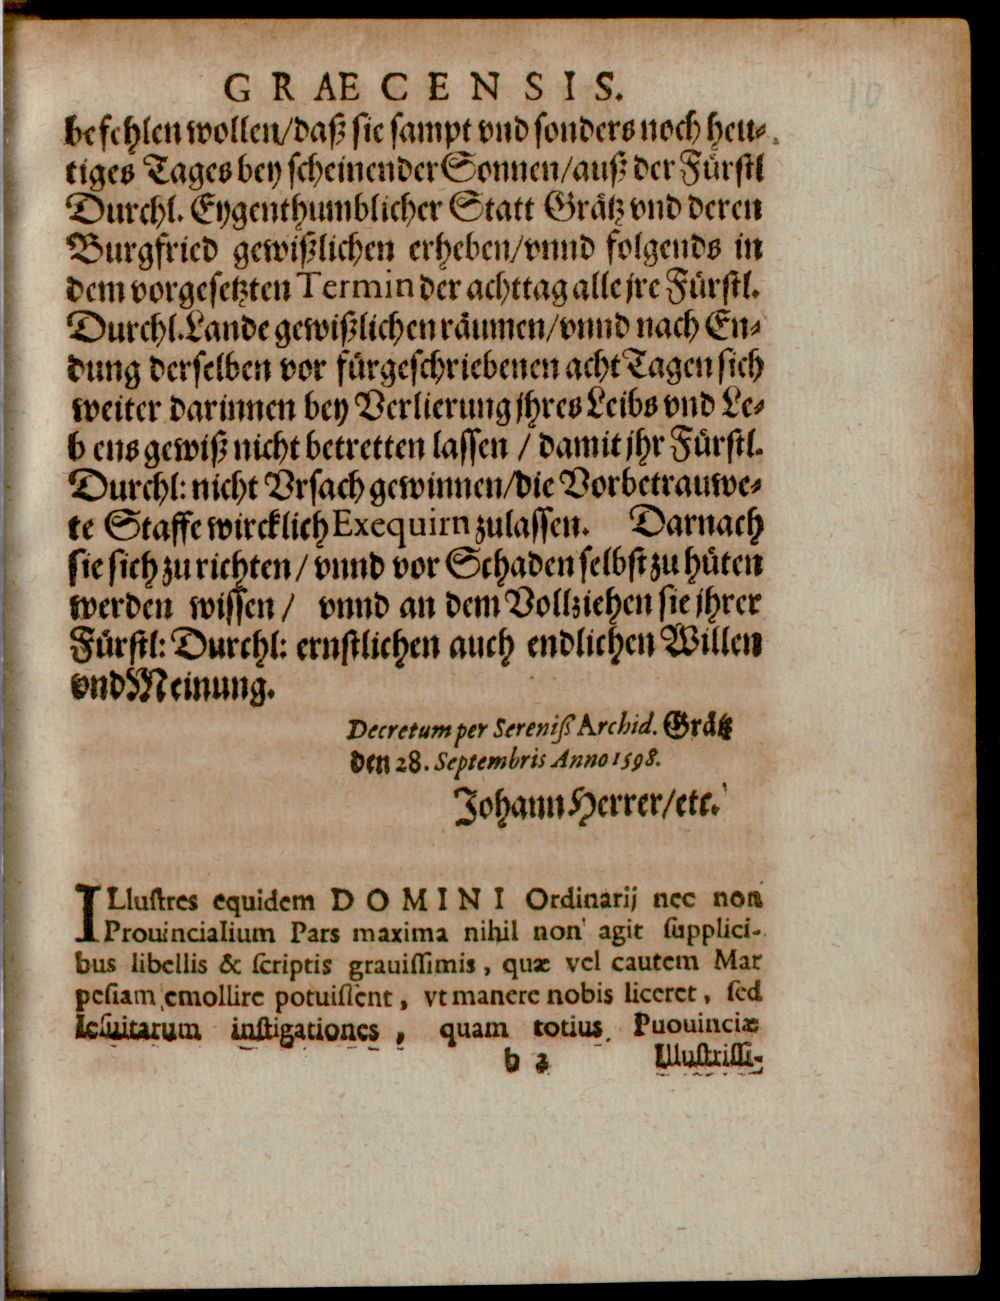 GRAECENSIS.
10
befehlen wollen/daß sie sampt vnd sonders noch heu⸗
tiges Tages bey scheinender Sonnen/auß der Fürstl
Durchl. Eygenthumblicher Statt Grätz vnd deren
Burgfried gewißlichen erheben/vnnd folgends in
dem vorgesetzten Termin der achttag alle jre Fürstl.
Durchl. Lande gewißlichen räumen/vnnd nach En⸗
dung derselben vor fürgeschriebenen acht Tagen sich
weiter darinnen bey Verlierung jhres Leibs vnd Le⸗
b ens gewiß nicht betretten lassen / damit jhr Fürstl.
Durchl: nicht Vrsach gewinnen/die Vorbetrauwe⸗
te Staffe wircklich Exequirn zulassen. Darnach
sie sich zu richten/ vnnd vor Schaden selbst zu hüten
werden wissen/ vnnd an dem Vollziehen sie jhrer
Fürstl: Durchl: ernstlichen auch endlichen Willen
vnd Meinung.
Decretum per Sereniß Archid. Grätz
den 28. Septembris Anno 1598.
Johann Herrer/etc.
ILlustres equidem DOMINI Ordinarij nec non
Prouincialium Pars maxima nihil non agit supplici-
bus libellis & scriptis grauissimis, quæ vel cautem Mar
pesiam emollire potuissent, vt manere nobis liceret, sed
Iesuitarum instigationes, quam totius Puouinciæ
b 2 Illustrissi-